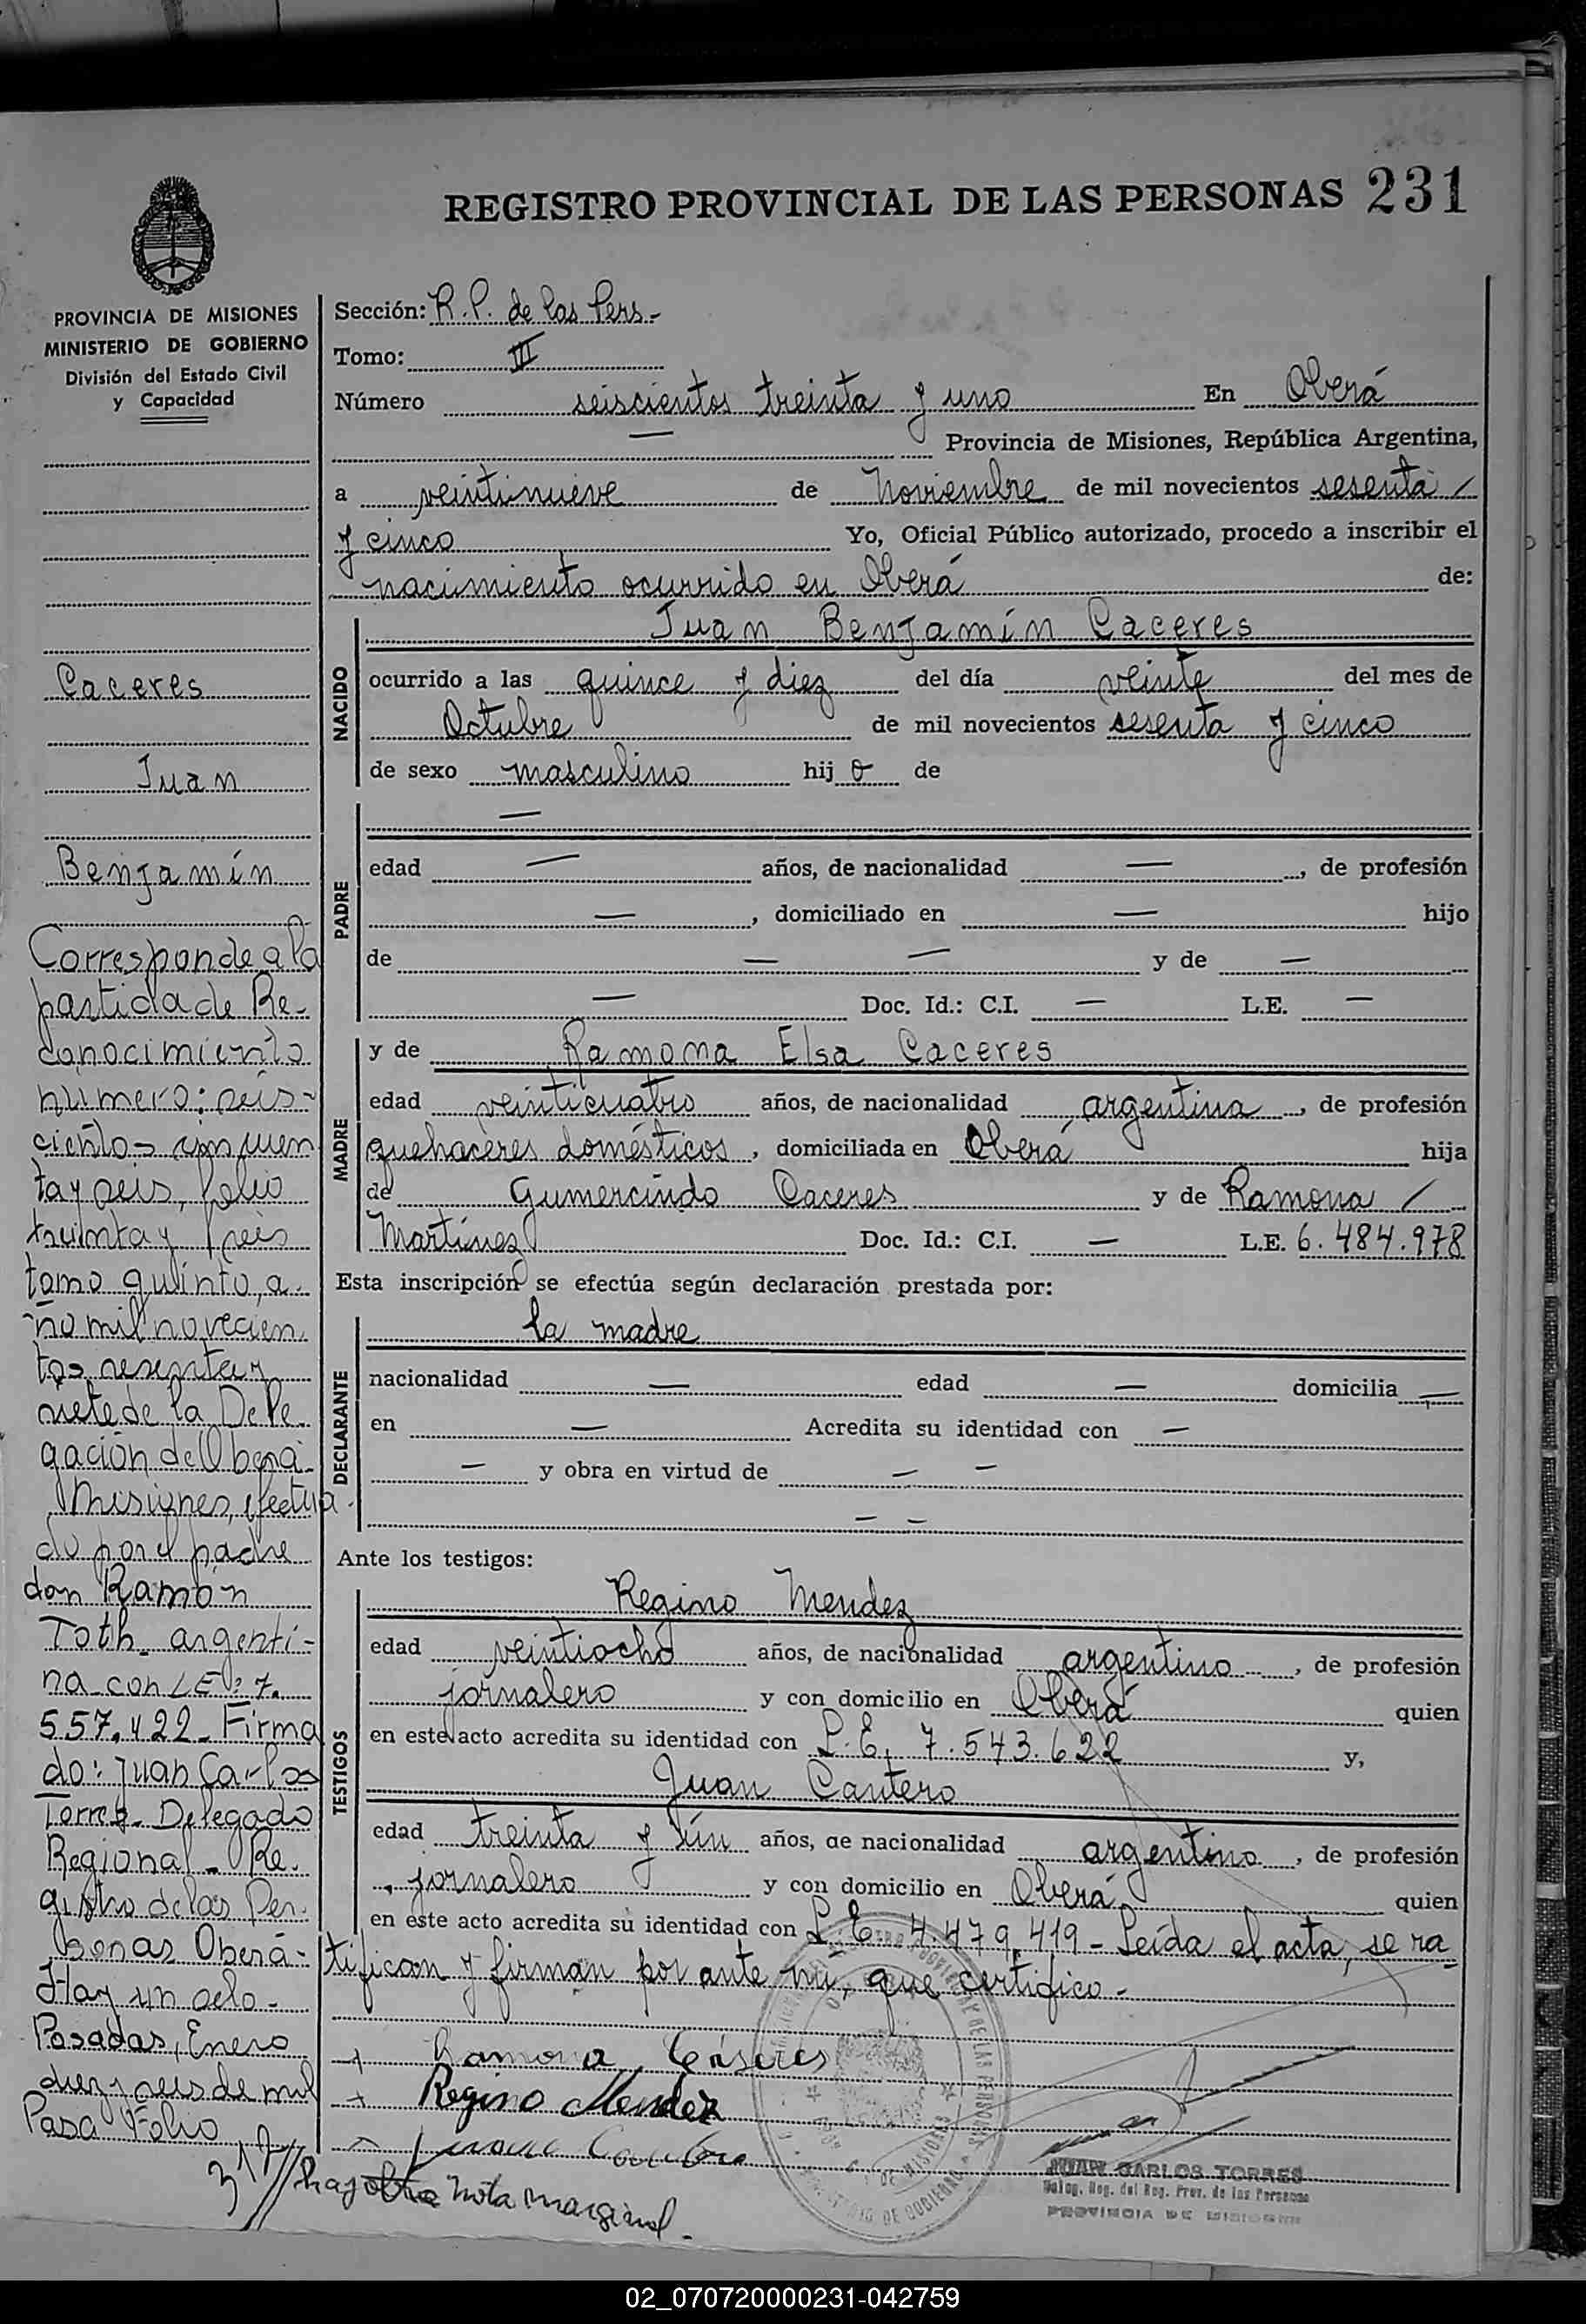 REGISTRO PROVINCIAL DE LAS PERSONAS 231
PROVINCIA DE MISIONES
MINISTERIO DE GOBIERNO
División del Estado Civil
y Capacidad
Caceres
Juan
Benjamín
Corresponde a la
partida de Re-
conocimiento
numero: seis-
cientos cincuen
ta y seis, folio
treinta y seis
tomo quinto, a-
ño mil novecien
tos sesenta y
siete de la Dele-
gación de Oberá
Misiones, efectua-
do por el padre
don Ramón
Toth argenti-
na con LE: 7.
557.422 - Firma
do: Juan Carlos
Torres - Delegado
Regional - Re-
gistro de las Per-
sonas Oberá -
Hay un selo -
Posadas, Enero
diez y seis de mil
Pasa Folio
317// hay otra nota marginal -
Sección: R.P. de las Pers -
Tomo: III
Número seiscientos treinta y uno En Oberá
— Provincia de Misiones, República Argentina,
a veintinueve de Noviembre de mil novecientos sesenta /
y cinco Yo, Oficial Público autorizado, procedo a inscribir el
nacimiento ocurrido en Oberá de:
NACIDO
Juan Benjamín Caceres
ocurrido a las quince y diez del día veinte del mes de
Octubre de mil novecientos sesenta y cinco
de sexo masculino hij o de
PADRE
—
edad — años, de nacionalidad —, de profesión
—, domiciliado en — hijo
de — — y de —
— Doc. Id.: C.I. — L.E. —
MADRE
y de Ramona Elsa Caceres
edad veinticuatro años, de nacionalidad argentina, de profesión
quehaceres domésticos, domiciliada en Oberá hija
de Gumercindo Caceres y de Ramona /
Martínez Doc. Id.: C.I. — L.E. 6.484.978
Esta inscripción se efectúa según declaración prestada por:
DECLARANTE
la madre
nacionalidad — edad — domicilia —
en — Acredita su identidad con —
— y obra en virtud de — —
— —
Ante los testigos:
TESTIGOS
Regino Mendez
edad veintiocho años, de nacionalidad argentino, de profesión
jornalero y con domicilio en Oberá quien
en este acto acredita su identidad con L.E. 7.543.622 y,
Juan Cantero
edad treinta y ún años, de nacionalidad argentino, de profesión
jornalero y con domicilio en Oberá quien
en este acto acredita su identidad con L.E. 4.479.419 - Leída el acta, se ra
tifican y firman por ante mi, que certifico -
Ramona Cáseres
Regino Mendez
JUAN CARLOS TORRES
Deleg. Reg. del Reg. Prov. de las Personas
PROVINCIA DE MISIONES
02_070720000231-042759